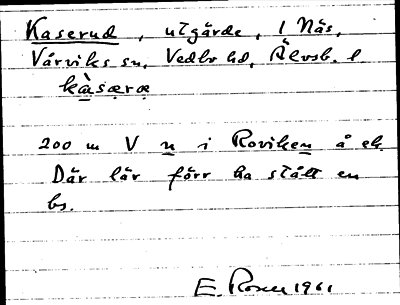 Kaserud, utgärde, 1 Näs,
Vårviks sn, Vedbo hd, Älvsb. l
kàsæræ
200 m V n i Roviken å ek.
Där lär förr ha stått en
bs.
E. Rosen 1961